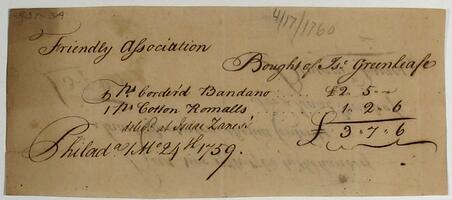 4/17/1760
Friendly Association
Bought of Is. Greenleafe
1 Ps. Corderd Bandano £2. 5 —
1 Ps. Cotton Romalls 1. 2. 6
delivd. at Isaac Zanes £3. 7. 6
Philad a 1 Mo 24th 1759.